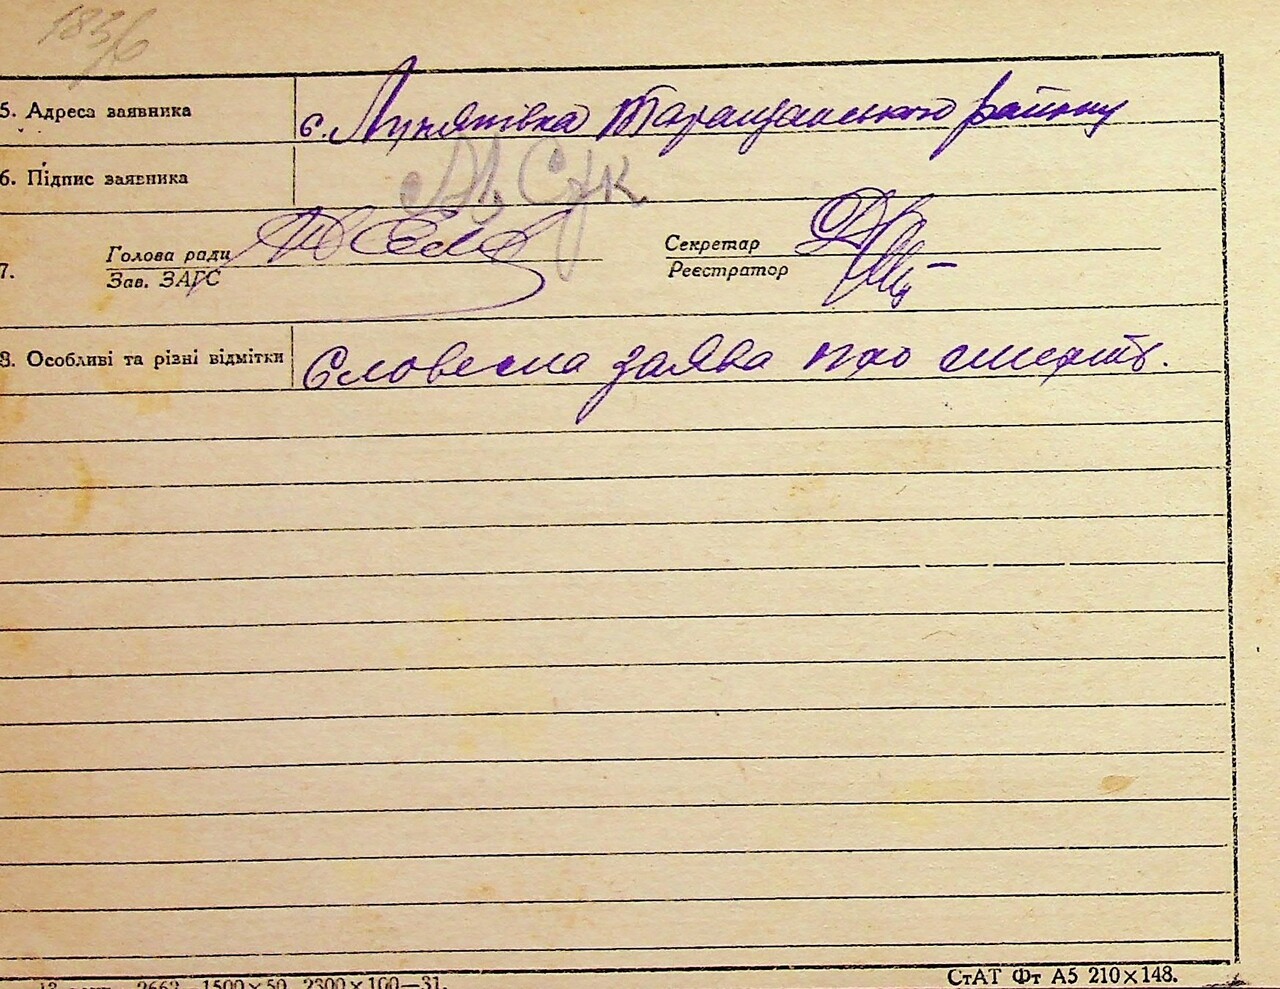 1836
5. Адреса заявника с. Лук'янівка Таращанського району
6. Підпис заявника
Голова ради Секретар
7. Зав. ЗАГС Реєстратор
8. Особливі та різні відмітки Словесна заява про смерть.
2663 1500×50 2300×100—31. СтАТ Фт А5 210×148.